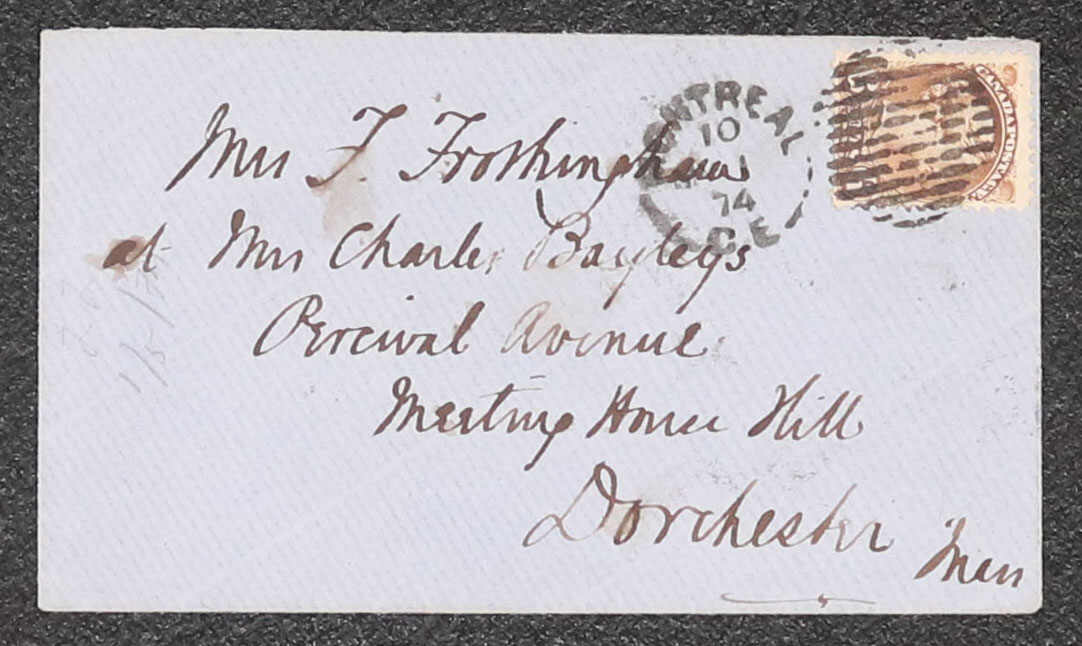 Mrs F. Frothingham
at Mrs Charles Bayley's
Percival Avenue
Meeting House Hill
Dorchester Mass
MONTREAL
10
74
CANADA POSTAGE